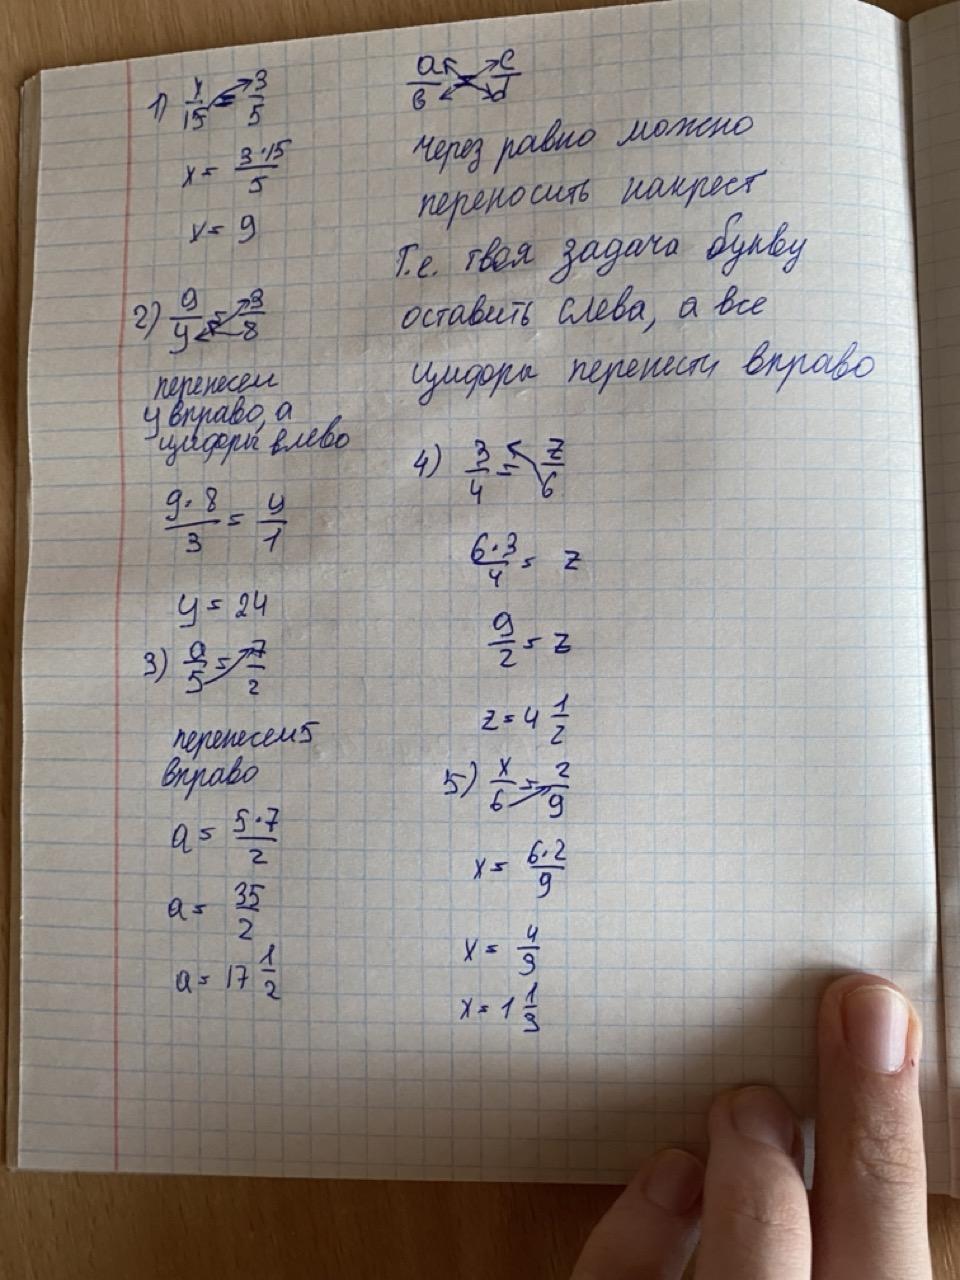 1) x/15 = 3/5
x = 3·15/5
x = 9
2) 9/y = 3/8
перенесем
y вправо, а
цифры влево
9·8/3 = y/1
y = 24
3) a/5 = 7/2
перенесем 5
вправо
a = 5·7/2
a = 35/2
a = 17 1/2
a/b c/d
Через равно можно
переносить накрест
Т.е. твоя задача букву
оставить слева, а все
цифры перенести вправо
4) 3/4 = z/6
6·3/4 = z
9/2 = z
z = 4 1/2
5) x/6 = 2/9
x = 6·2/9
x = 4/3
x = 1 1/3